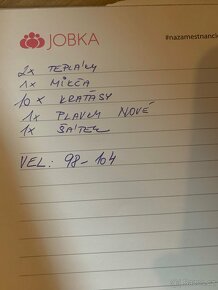 JOBKA
#nazamestnanci
2x TEPLÁKY
1x MIKČA
10x KRAŤASY
1x PLAVKY NOVÉ
1x ŠÁTEK
VEL: 98-104